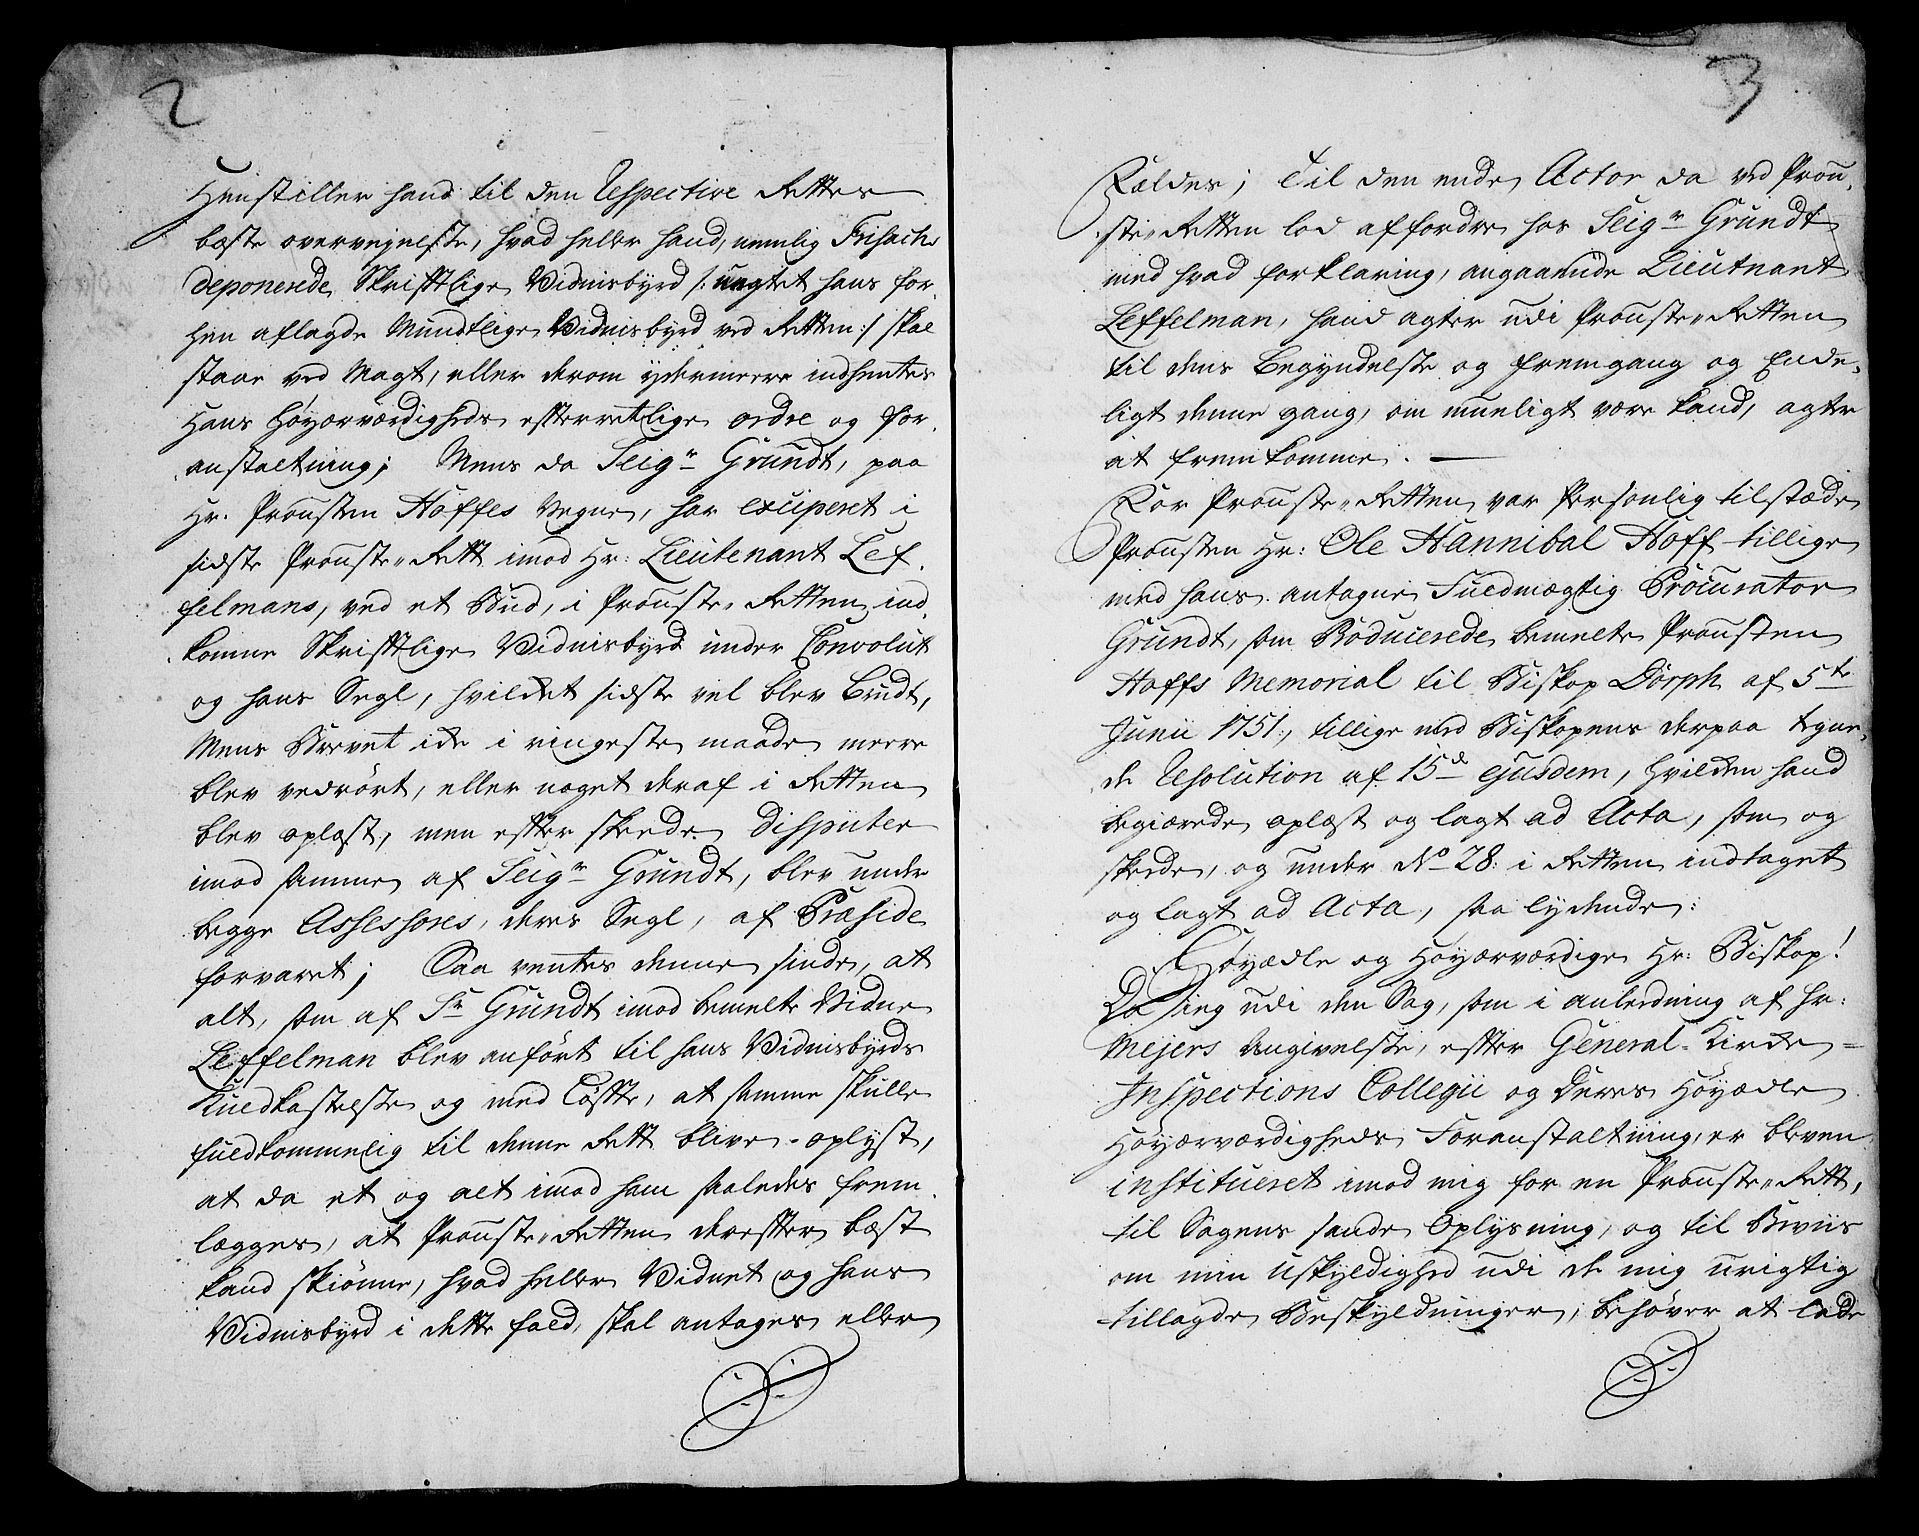 2
Henstiller hand til den Respective Rettes
bæste overvejelse, hvad heller hand, nemlig Frisachs
deponerede Skrifftlige Vidnisbyrd /: uagtet hans for-
hen aflagde Mundtlige Vidnisbyrd ved Retten :/ skal
staae ved Magt, eller derom ydermeere indhentes
Hans Høyærværdigheds efterretlige ordre og for-
anstaltning; Mens da Seigr Grundt, paa
Hr. Prousten Hoffes Vegne, har exciperet i
sidste Prouste-Rett imod Hr: Lieutenant Lef-
felmans, ved et Bud, i Prouste-Retten ind-
komne Skrifftlige Vidnisbyrd under Convolut
og hans Segl, hvilket sidste vel blev brudt,
Mens Brevet icke i ringeste maade meere
blev vedrørt, eller noget deraf i Retten
blev oplæst, men efter skeede Disputer
imod samme af Seigr Grundt, blev under
begge Assessores, deres Segl, af Præside
forvaret; Saa ventes denne sinde, at
alt, som af Sr Grundt imod bemelte Vidne
Leffelman blev anført til hans Vidnisbyrds
Kuldkastelse og med Løffte, at samme skulle
fuldkommelig til denne Rett blive oplyst,
at da et og alt imod ham saaledes frem-
lægges, at Prouste-Retten derefter bæst
kand skiønne, hvad heller Vidnet og hans
Vidnisbyrd i dette fald, skal antages eller
3
Fældes; Til den ende Actor da ved Prou-
ste-Retten lod affordre hos Seigr Grundt
med hvad forklaring, angaaende Lieutnant
Leffelman, hand agter udi Prouste-Retten
til dens Begyndelse og fremgang og Ende-
ligt denne gang, om mueligt være kand, agter
at fremkomme. —
For Prouste-Retten var Personlig tilstæde
Prousten Hr: Ole Hannibal Hoff tillige
med hans antagne Fuldmægtig Procurator
Grundt, som Producerede bemelte Prousten
Hoffs Memorial til Biskop Dorph af 5te
Junii 1751, tillige med Biskopens derpaa tegne-
de Resolution af 15de ejusdem, hvilken hand
begiærede oplæst og lagt ad Acta, som og
skeede, og under No 28: i Retten indtaget
og lagt ad Acta, saa lydende:
Høyædle og Høyærværdige Hr: Biskop!
Da jeg udi den Sag, som i anledning af Hr:
Mejers Angivelse, efter General-Kirke-
Inspections Collegii og Deres Høyædle
Høyærværdigheds Foranstaltning, er bleven
institueret imod mig for en Prouste-Rett,
til Sagens sande Oplysning, og til Beviis
om min Uskyldighed udi de mig urigtig
tillagde Beskyldninger, behøver at lade